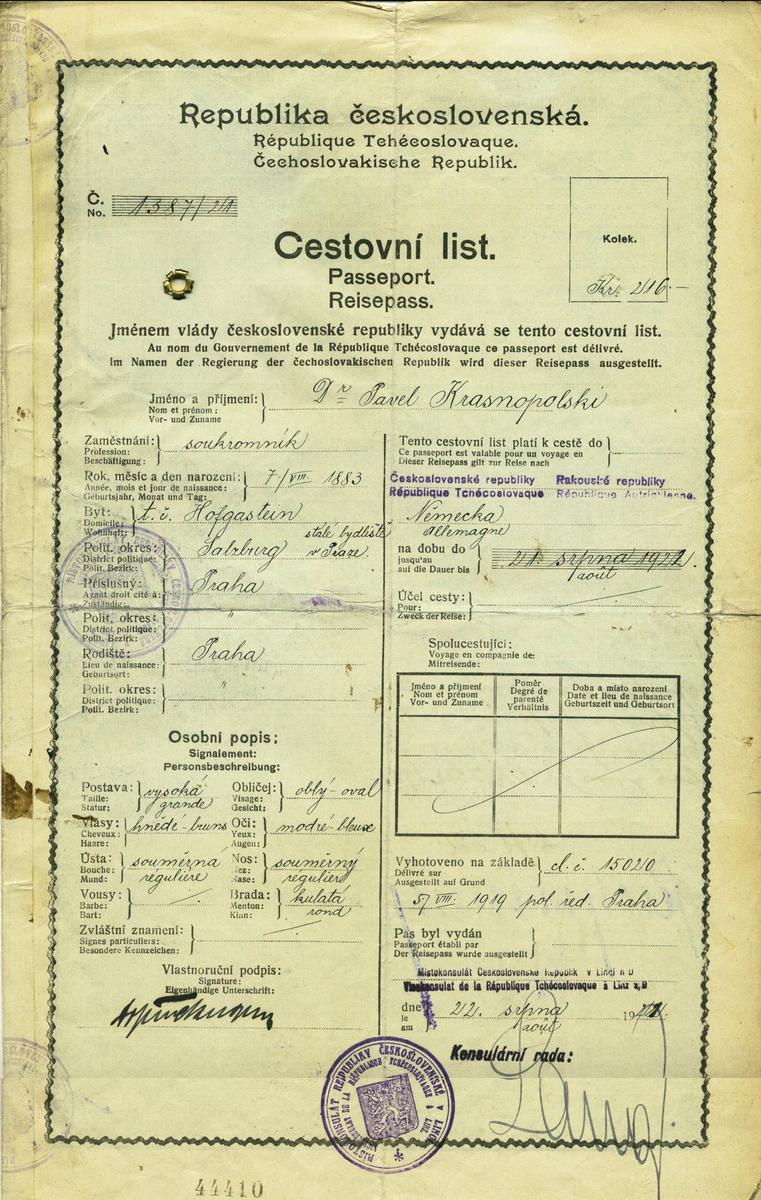 Republika československá.
République Tchécoslovaque.
Čechoslovakische Republik.
Č.
No. 1387/21
Kolek.
Kr. 216.-
Cestovní list.
Passeport.
Reisepass.
Jménem vlády československé republiky vydává se tento cestovní list.
Au nom du Gouvernement de la République Tchécoslovaque ce passeport est délivré.
Im Namen der Regierung der čechoslovakischen Republik wird dieser Reisepass ausgestellt.
Jméno a příjmení:
Nom et prénom:
Vor- und Zuname
Dr Pavel Krasnopolski
Zaměstnání:
Profession:
Beschäftigung:
soukromník
Rok, měsíc a den narození:
Année, mois et jour de naissance:
Geburtsjahr, Monat und Tag:
7/VIII. 1883
Byt:
Domicile:
Wohnhaft:
t. č. Hofgastein
stálé bydliště
v Praze
Polit. okres:
District politique:
Polit. Bezirk:
Salzburg
Příslušný:
Ayant droit cité à:
Zuständig:
Praha
Polit. okres:
District politique:
Polit. Bezirk:
"
Rodiště:
Lieu de naissance:
Geburtsort:
Praha
Polit. okres:
District politique:
Polit. Bezirk:
"
Osobní popis:
Signalement:
Personsbeschreibung:
Postava:
Taille:
Statur:
vysoká
grande
Obličej:
Visage:
Gesicht:
oblý-oval
Vlasy:
Cheveux:
Haare:
hnědé-bruns
Oči:
Yeux:
Augen:
modré-bleux
Ústa:
Bouche:
Mund:
souměrná
régulière
Nos:
Nez:
Nase:
souměrný
régulière
Vousy:
Barbe:
Bart:
Brada:
Menton:
Kinn:
kulatá
rond
Zvláštní znamení:
Signes particuliers:
Besondere Kennzeichen:
Vlastnoruční podpis:
Signature:
Eigenhändige Unterschrift:
Tento cestovní list platí k cestě do
Ce passeport est valable pour un voyage en
Dieser Reisepass gilt zur Reise nach
Československé republiky Rakouské republiky
République Tchécoslovaque République Autrichienne.
Německa
Allemagne
na dobu do
jusqu'au
auf die Dauer bis
21. srpna 1922.
août
Účel cesty:
Pour:
Zweck der Reise:
Spolucestující:
Voyage en compagnie de:
Mitreisende:
Jméno a příjmení
Nom et prénom
Vor- und Zuname
Poměr
Degré de
parenté
Verhältnis
Doba a místo narození
Date et lieu de naissance
Geburtszeit und Geburtsort
Vyhotoveno na základě
Délivré sur
Ausgestellt auf Grund
cl. č. 15020
5/VIII. 1919 pol. řed. Praha
Pas byl vydán
Passeport établi par
Der Reisepass wurde ausgestellt
Místokonsulát Československé Republik v Linci n D
Vicekonsulat de la République Tchécoslovaque à Linz s.D
dne
le
am
22. srpna
août
Konsulární rada:
MÍSTOKONSULÁT REPUBLIKY ČESKOSLOVENSKÉ V LINCI
44410